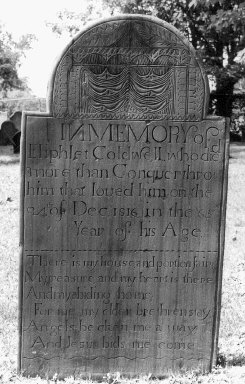 IN MEMORY of
Eliphlet Coldwell, who die
more than Conquer thro
him that loved him on the
of Dec 1816 in the
Year of his Age
There is my house and portion fair
My treasure and my heart is there
And my abiding home
For me my elder brethren stay
Angels beckon me away
And Jesus bids me come